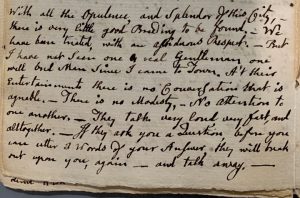 With all the Opulence, and Splendor of this City,
there is very little good Breeding to be found. — We
have been treated, with an assiduous Respect. — But
I have not seen one real Gentleman, one
well bred Man Since I came to Town. At their
Entertainments there is no Conversation that is
agreable. — There is no Modesty — No Attention to
one another. — They talk very loud, very fast, and
alltogether. — If they ask you a Question, before you
can utter 3 Words of your Answer, they will break
out upon you, again — and talk away. —